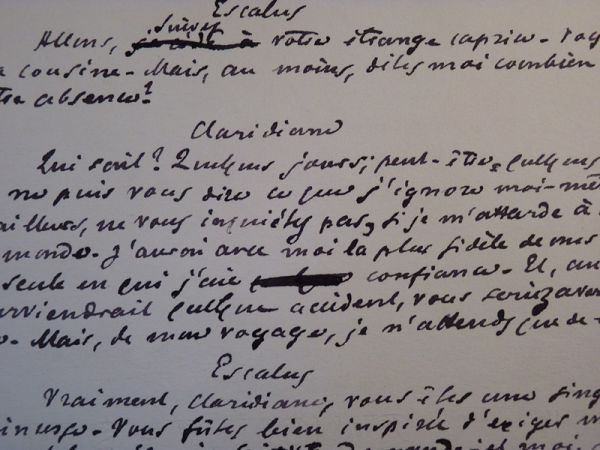 Escalus
Allons, suivez votre étrange caprice. Voy
cousine. Mais, au moins, dites moi combien
absence?
Claridiane
Qui sait? Quelques jours; peut-être, quelques
ne puis vous dire ce que j'ignore moi-mê
ailleurs, ne vous inquiétez pas, si je m'attarde à
monde. J'aurai avec moi la plus fidèle de mes
seule en qui j'aie confiance. Et, au
urviendrait quelque accident, vous seriez aver
Mais, de mon voyage, je n'attends que de
Escalus
Vraiment, Claridiane, vous êtes une sing
Vous fûtes bien inspirée d'exiger